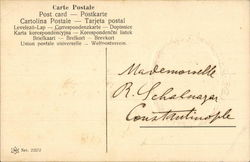 Carte Postale
Post card — Postkarte
Cartolina Postale — Tarjeta postal
Levelező-Lap — Correspondenzkarte — Dopisnice
Karta korespondencyjna — Korespondenční lístek
Brielkaart — Brefkort — Brevkort
Union postale universelle — Weltpostverein.
Mademoiselle
R. Schalnazar
Constantinople
Ser. 2227/2